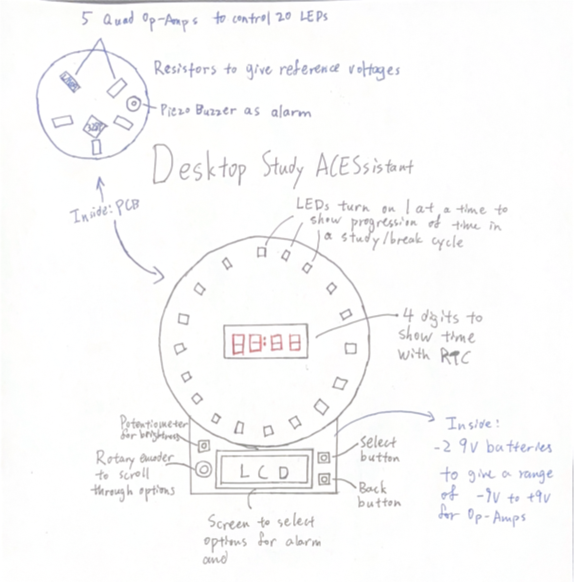 5 Quad Op-Amps to control 20 LEDs
Resistors to give reference voltages
Piezo Buzzer as alarm
Desktop Study ACESsistant
Inside: PCB
LEDs turn on 1 at a time to
show progression of time in
a study/break cycle
88:88
4 digits to
show time
with RTC
Potentiometer
for brightness
Rotary encoder
to scroll
through options
LCD
Select
button
Back
button
Screen to select
options for alarm
and
Inside:
-2 9V batteries
to give a range
of -9V to +9V
for Op-Amps